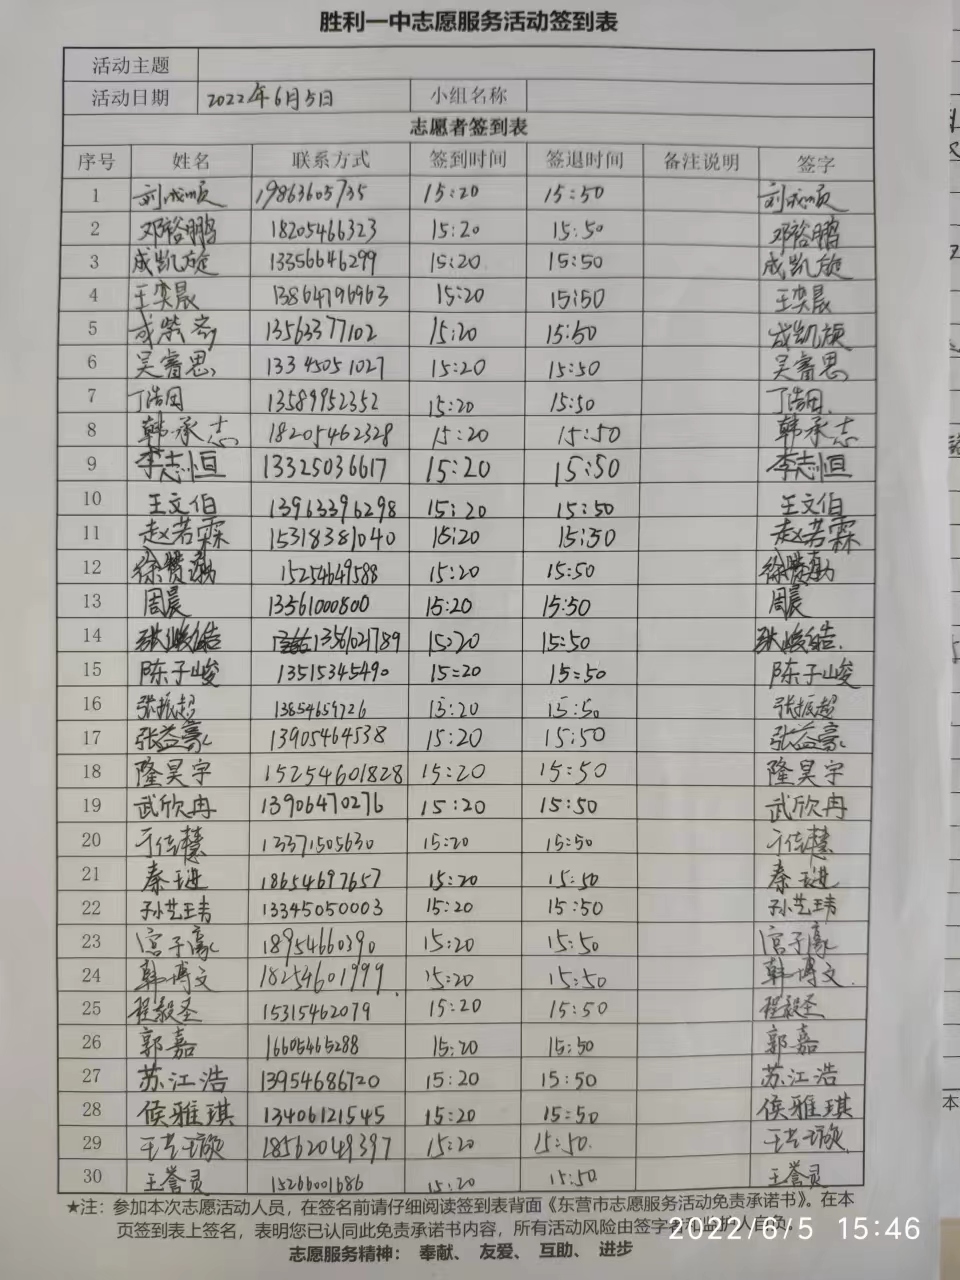 胜利一中志愿服务活动签到表
活动主题
活动日期 2022年6月5日 小组名称
志愿者签到表
序号 姓名 联系方式 签到时间 签退时间 备注说明 签字
1 刘成顺 19863605735 15:20 15:50 刘成顺
2 邓裕鹏 18205466323 15:20 15:50 邓裕鹏
3 成凯旋 13356646299 15:20 15:50 成凯旋
4 王奕晨 13864796963 15:20 15:50 王奕晨
5 13563377102 15:20 15:50
6 吴睿思 13345051027 15:20 15:50 吴睿思
7 丁浩田 13589952352 15:20 15:50 丁浩田
8 韩承志 18205462328 15:20 15:50 韩承志
9 李志恒 13325036617 15:20 15:50 李志恒
10 王文伯 13963396298 15:20 15:50 王文伯
11 赵若霖 15318381040 15:20 15:50 赵若霖
12 徐赞勋 15254649588 15:20 15:50 徐赞勋
13 周晨 13561000800 15:20 15:50 周晨
14 张峻皓 13561021789 15:20 15:50 张峻皓
15 陈子峻 13515345490 15:20 15:50 陈子峻
16 张振超 13854659726 15:20 15:50 张振超
17 张益豪 13905464538 15:20 15:50 张益豪
18 隆昊宇 15254601828 15:20 15:50 隆昊宇
19 武欣冉 13906470276 15:20 15:50 武欣冉
20 于佳慧 13371505630 15:20 15:50 于佳慧
21 秦琎 18654697657 15:20 15:50 秦琎
22 孙艺玮 13345050003 15:20 15:50 孙艺玮
23 宫子豪 18954660390 15:20 15:50 宫子豪
24 韩博文 18254601999 15:20 15:50 韩博文
25 程毅圣 15315462079 15:20 15:50 程毅圣
26 郭嘉 16605465288 15:20 15:50 郭嘉
27 苏江浩 13954686720 15:20 15:50 苏江浩
28 侯雅琪 13406121545 15:20 15:50 侯雅琪
29 王艺璇 18562049397 15:20 15:50 王艺璇
30 王誉灵 15266001686 15:20 15:50 王誉灵
★注：参加本次志愿活动人员，在签名前请仔细阅读签到表背面《东营市志愿服务活动免责承诺书》。在本
页签到表上签名，表明您已认同此免责承诺书内容，所有活动风险由签字
志愿服务精神： 奉献、 友爱、 互助、 进步
2022/6/5 15:46